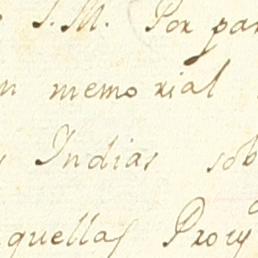 S.M. Por par
n memorial
Indias sob
quellas Provy